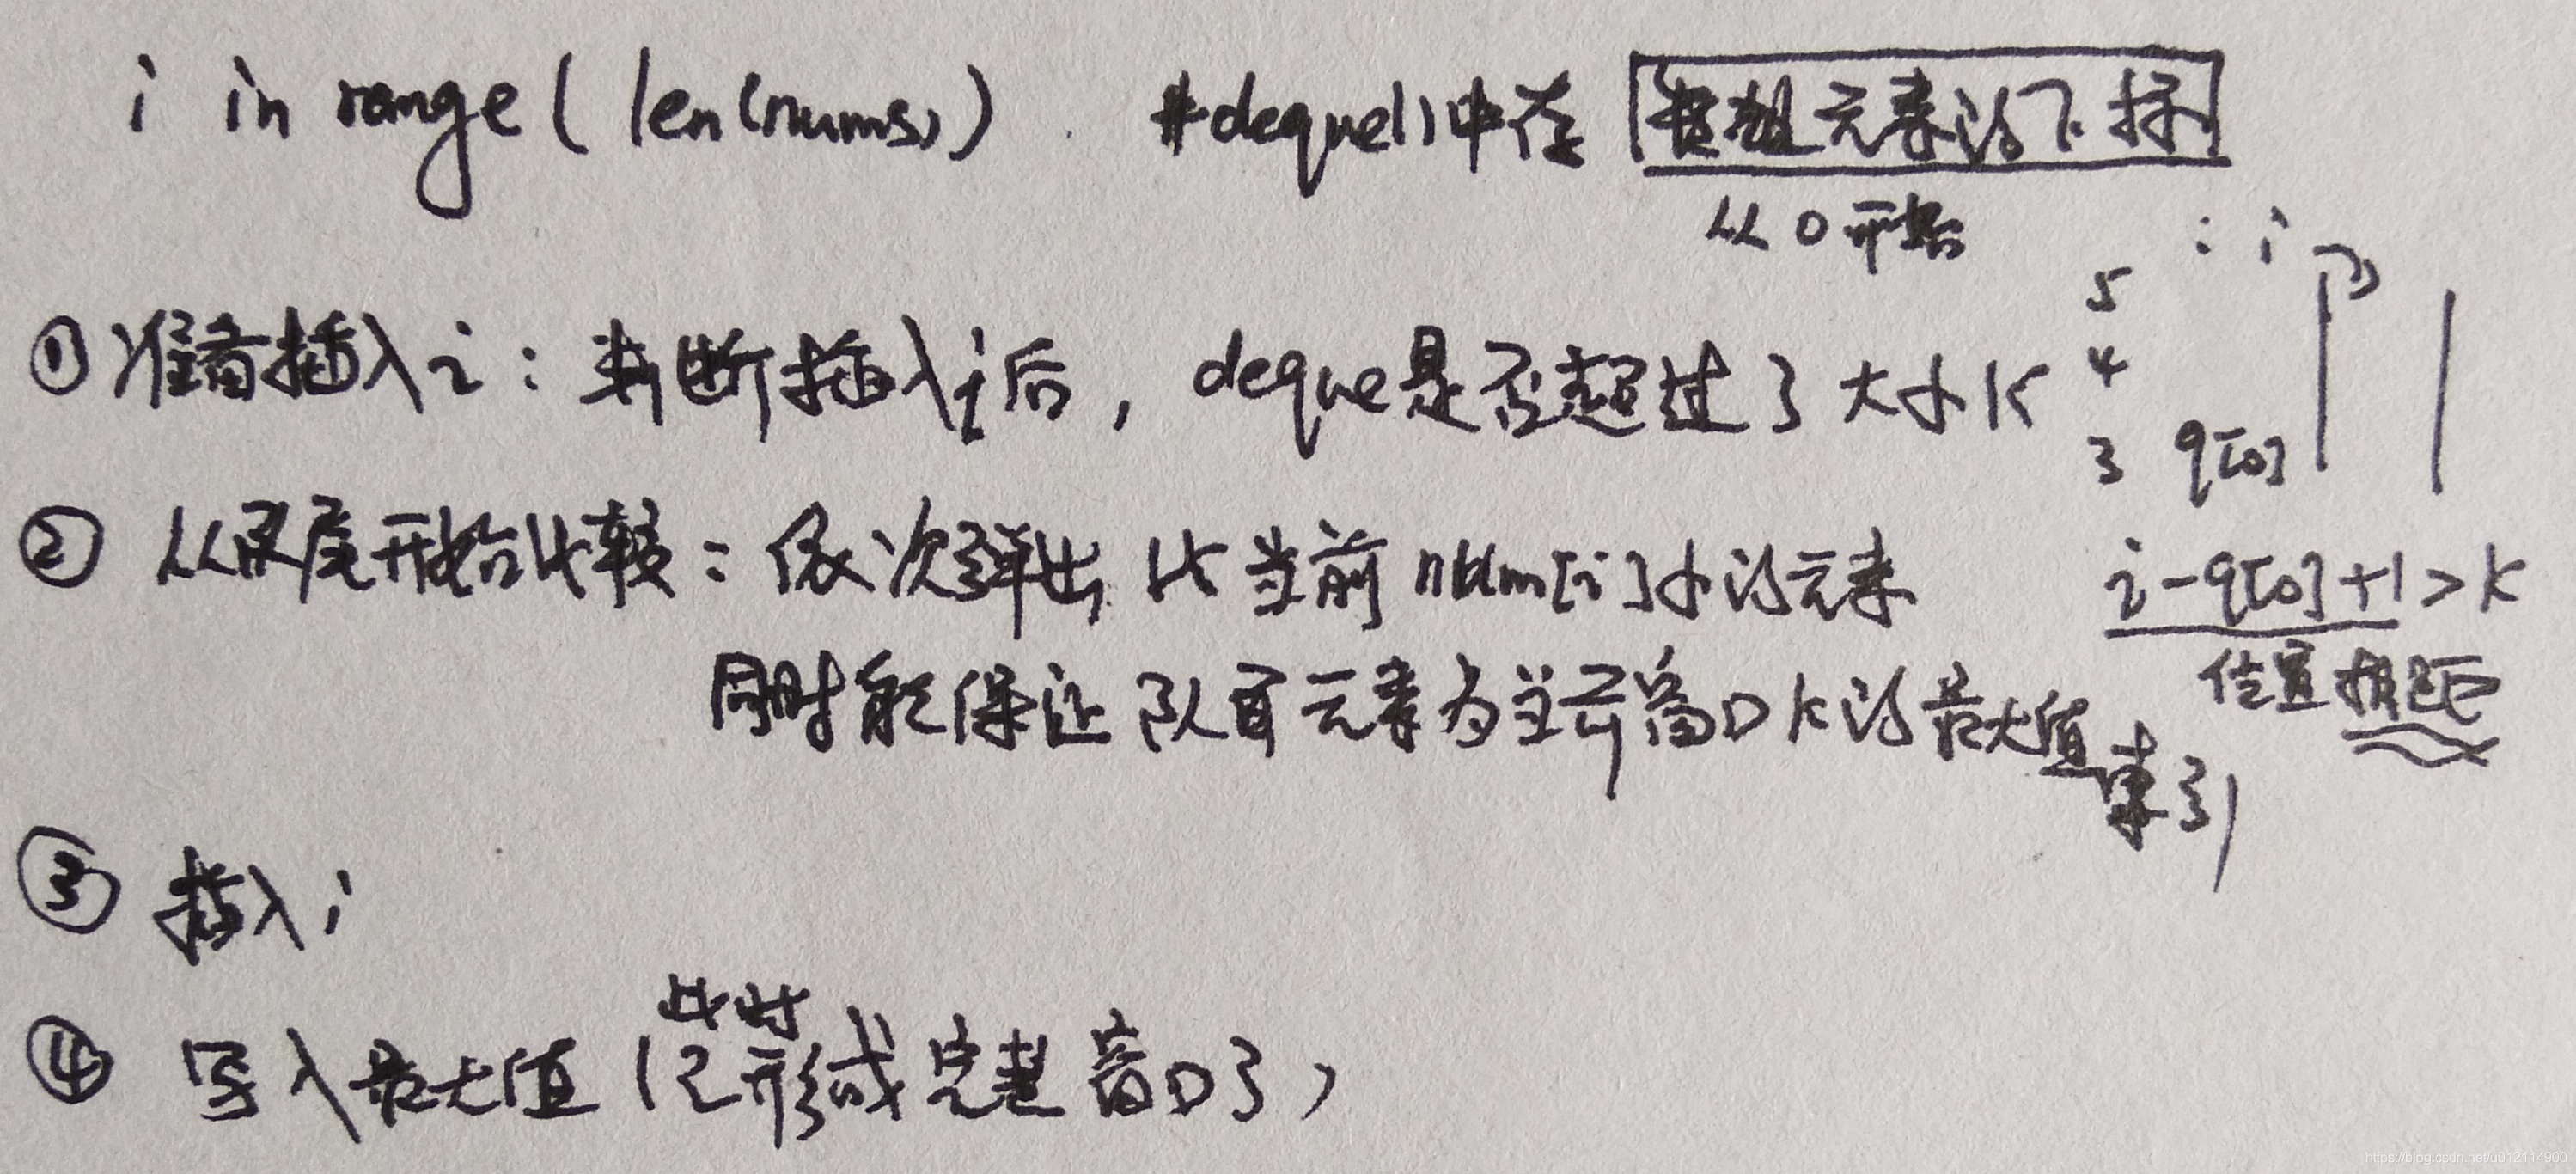 i in range(len(nums)) #deque()中存 数组元素的下标
从0开始
: i
5
4
3 q[0]
①准备插入i：判断插入i后，deque是否超过了大小K
②从队尾开始比较：依次弹出比当前num[i]小的元素
i-q[0]+1>k
位置相距
同时能保证队首元素为当前窗口k的最大值索引
③插入i
④写入最大值(此时已形成完整窗口了)
https://blog.csdn.net/u012114900